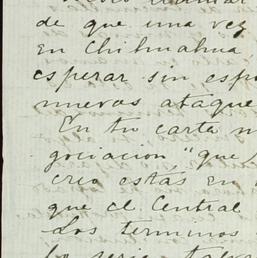 de que una vez
en Chihuahua
esperar sin esp
nuevos ataque
En tu carta
gociacion "que
creo estás en
que el Central
Los terminos